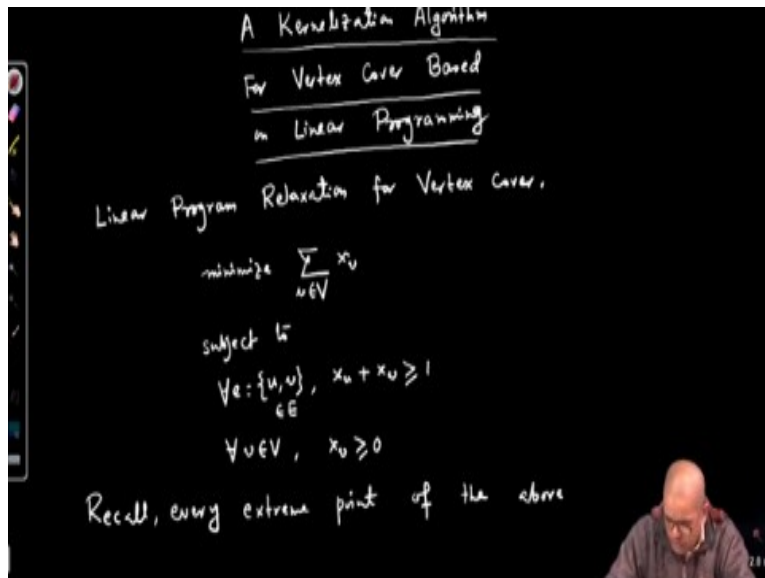 A Kernelization Algorithm
For Vertex Cover Based
on Linear Programming
Linear Program Relaxation for Vertex Cover.
minimize ∑ x_v
v∈V
subject to
∀e:{u,v}, x_u + x_v ⩾ 1
∈E
∀v∈V, x_v ⩾ 0
Recall, every extreme point of the above